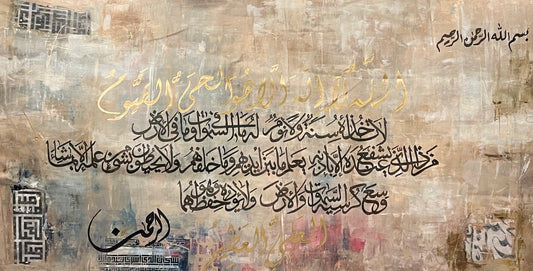 بسم الله الرحمن الرحيم
الله لا إله إلا هو الحي القيوم
لا تأخذه سنة ولا نوم له ما في السموات وما في الأرض
من ذا الذي يشفع عنده إلا بإذنه يعلم ما بين أيديهم وما خلفهم ولا يحيطون بشيء من علمه إلا بما شاء
وسع كرسيه السموات والأرض ولا يؤوده حفظهما
وهو العلي العظيم
الرحمن